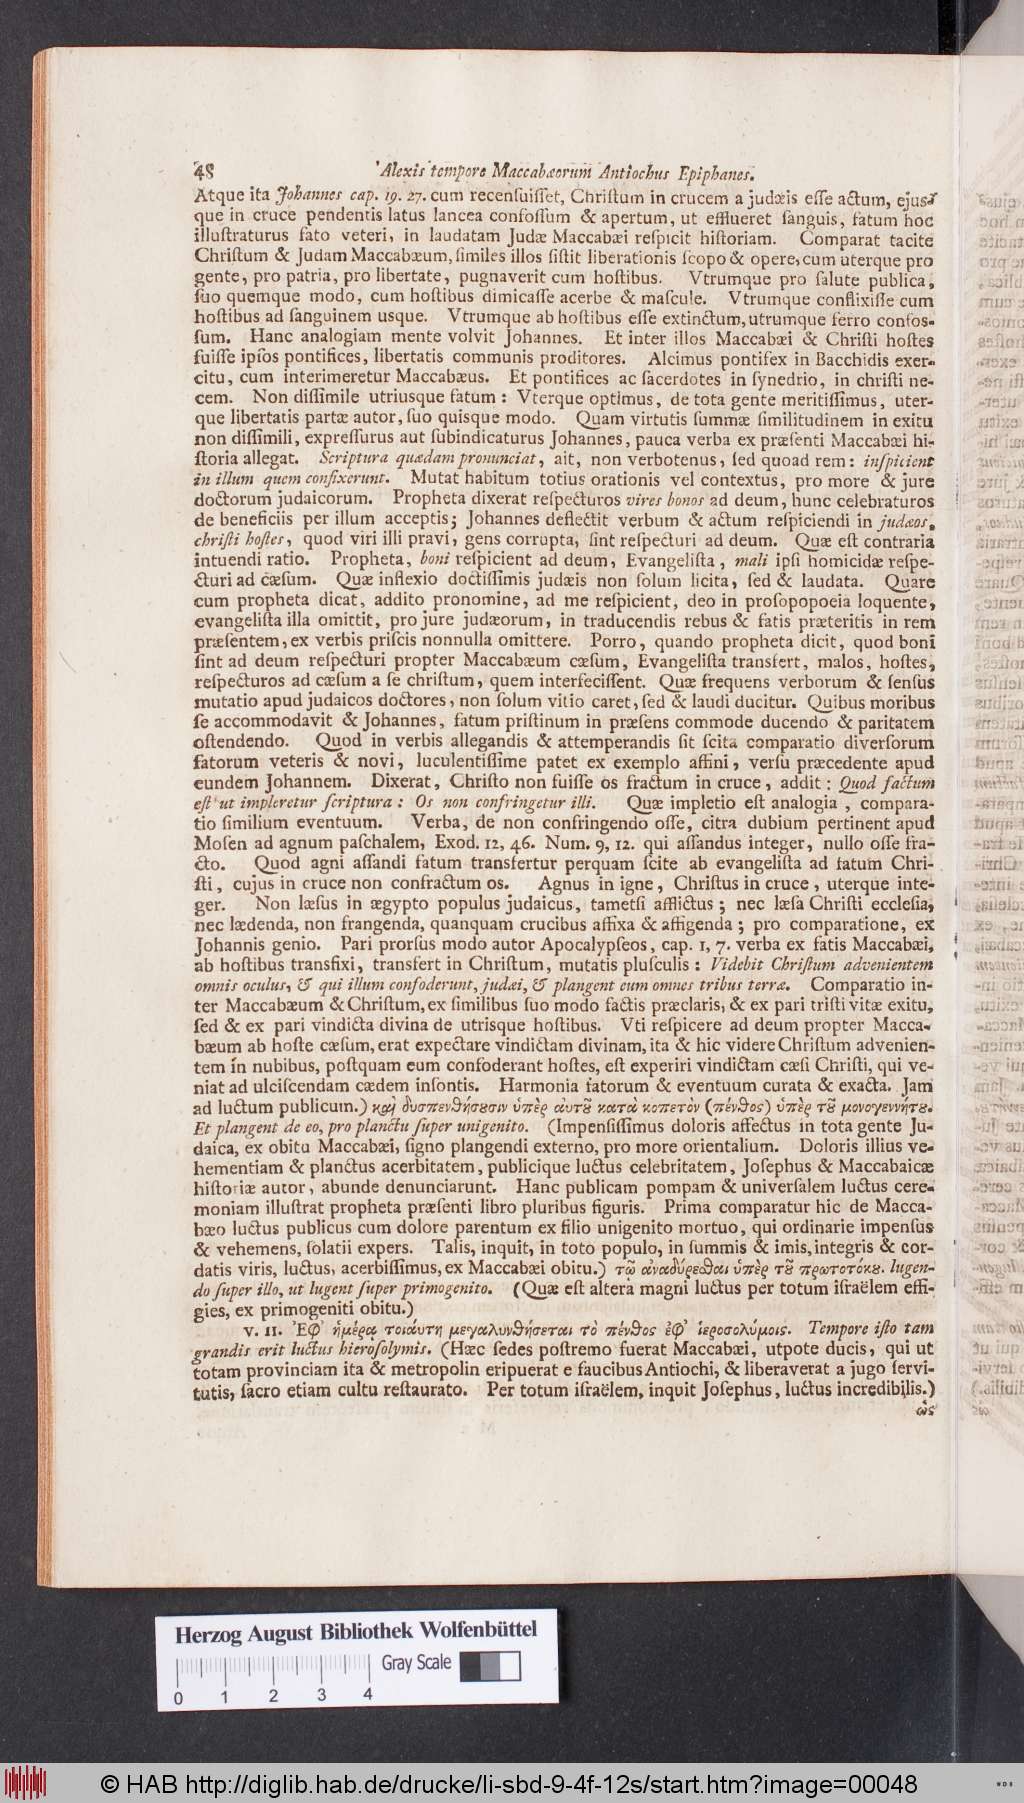 48 Alexis tempore Maccabæorum Antiochus Epiphanes.
Atque ita Johannes cap. 19. 27. cum recenſuiſſet, Chriſtum in crucem a judæis eſſe actum, ejus-
que in cruce pendentis latus lancea confoſſum & apertum, ut efflueret ſanguis, fatum hoc
illuſtraturus fato veteri, in laudatam Judæ Maccabæi reſpicit hiſtoriam. Comparat tacite
Chriſtum & Judam Maccabæum, ſimiles illos ſiſtit liberationis ſcopo & opere, cum uterque pro
gente, pro patria, pro libertate, pugnaverit cum hoſtibus. Vtrumque pro ſalute publica,
ſuo quemque modo, cum hoſtibus dimicaſſe acerbe & maſcule. Vtrumque conflixiſſe cum
hoſtibus ad ſanguinem usque. Vtrumque ab hoſtibus eſſe extinctum, utrumque ferro confos-
ſum. Hanc analogiam mente volvit Johannes. Et inter illos Maccabæi & Chriſti hoſtes
fuiſſe ipſos pontifices, libertatis communis proditores. Alcimus pontifex in Bacchidis exer-
citu, cum interimeretur Maccabæus. Et pontifices ac ſacerdotes in ſynedrio, in chriſti ne-
cem. Non diſſimile utriusque fatum: Vterque optimus, de tota gente meritiſſimus, uter-
que libertatis partæ autor, ſuo quisque modo. Quam virtutis ſummæ ſimilitudinem in exitu
non diſſimili, expreſſurus aut ſubindicaturus Johannes, pauca verba ex præſenti Maccabæi hi-
ſtoria allegat. Scriptura quædam pronunciat, ait, non verbotenus, ſed quoad rem: inſpicient
in illum quem confixerunt. Mutat habitum totius orationis vel contextus, pro more & jure
doctorum judaicorum. Propheta dixerat reſpecturos vires bonos ad deum, hunc celebraturos
de beneficiis per illum acceptis; Johannes deflectit verbum & actum reſpiciendi in judæos,
chriſti hoſtes, quod viri illi pravi, gens corrupta, ſint reſpecturi ad deum. Quæ eſt contraria
intuendi ratio. Propheta, boni reſpicient ad deum, Evangeliſta, mali ipſi homicidæ reſpe-
cturi ad cæſum. Quæ inflexio doctiſſimis judæis non ſolum licita, ſed & laudata. Quare
cum propheta dicat, addito pronomine, ad me reſpicient, deo in proſopopoeia loquente,
evangeliſta illa omittit, pro jure judæorum, in traducendis rebus & fatis præteritis in rem
præſentem, ex verbis priſcis nonnulla omittere. Porro, quando propheta dicit, quod boni
ſint ad deum reſpecturi propter Maccabæum cæſum, Evangeliſta transfert, malos, hoſtes,
reſpecturos ad cæſum a ſe chriſtum, quem interfeciſſent. Quæ frequens verborum & ſenſus
mutatio apud judaicos doctores, non ſolum vitio caret, ſed & laudi ducitur. Quibus moribus
ſe accommodavit & Johannes, fatum priſtinum in præſens commode ducendo & paritatem
oſtendendo. Quod in verbis allegandis & attemperandis ſit ſcita comparatio diverſorum
fatorum veteris & novi, luculentiſſime patet ex exemplo affini, verſu præcedente apud
eundem Johannem. Dixerat, Chriſto non fuiſſe os fractum in cruce, addit: Quod factum
eſt ut impleretur ſcriptura: Os non confringetur illi. Quæ impletio eſt analogia, compara-
tio ſimilium eventuum. Verba, de non confringendo oſſe, citra dubium pertinent apud
Moſen ad agnum paſchalem, Exod. 12, 46. Num. 9, 12. qui aſſandus integer, nullo oſſe fra-
cto. Quod agni aſſandi fatum transfertur perquam ſcite ab evangeliſta ad fatum Chri-
ſti, cujus in cruce non confractum os. Agnus in igne, Chriſtus in cruce, uterque inte-
ger. Non læſus in ægypto populus judaicus, tametſi afflictus; nec læſa Chriſti eccleſia,
nec lædenda, non frangenda, quanquam crucibus affixa & affigenda; pro comparatione, ex
Johannis genio. Pari prorſus modo autor Apocalypſeos, cap. 1, 7. verba ex fatis Maccabæi,
ab hoſtibus transfixi, transfert in Chriſtum, mutatis pluſculis: Videbit Chriſtum advenientem
omnis oculus, & qui illum confoderunt, judæi, & plangent eum omnes tribus terræ. Comparatio in-
ter Maccabæum & Chriſtum, ex ſimilibus ſuo modo factis præclaris, & ex pari triſti vitæ exitu,
ſed & ex pari vindicta divina de utrisque hoſtibus. Vti reſpicere ad deum propter Macca-
bæum ab hoſte cæſum, erat expectare vindictam divinam, ita & hic videre Chriſtum advenien-
tem in nubibus, poſtquam eum confoderant hoſtes, eſt experiri vindictam cæſi Chriſti, qui ve-
niat ad ulciſcendam cædem inſontis. Harmonia fatorum & eventuum curata & exacta. Jam
ad luctum publicum.) καὶ δυσπενθήσουσιν ὑπὲρ ἀυτοῦ κατὰ κοπετὸν (πένθος) ὑπὲρ τοῦ μονογεννήτου.
Et plangent de eo, pro planctu ſuper unigenito. (Impenſiſſimus doloris affectus in tota gente Ju-
daica, ex obitu Maccabæi, ſigno plangendi externo, pro more orientalium. Doloris illius ve-
hementiam & planctus acerbitatem, publicique luctus celebritatem, Joſephus & Maccabaicæ
hiſtoriæ autor, abunde denunciarunt. Hanc publicam pompam & univerſalem luctus cere-
moniam illuſtrat propheta præſenti libro pluribus figuris. Prima comparatur hic de Macca-
bæo luctus publicus cum dolore parentum ex filio unigenito mortuo, qui ordinarie impenſus
& vehemens, ſolatii expers. Talis, inquit, in toto populo, in ſummis & imis, integris & cor-
datis viris, luctus, acerbiſſimus, ex Maccabæi obitu.) τῷ ἀναδύρεσθαι ὑπὲρ τοῦ πρωτοτόκου. lugen-
do ſuper illo, ut lugent ſuper primogenito. (Quæ eſt altera magni luctus per totum iſraëlem effi-
gies, ex primogeniti obitu.)
v. 11. Ἐφ' ἡμέρᾳ τοιάυτη μεγαλυνθήσεται τὸ πένθος ἐφ' ἱεροσολύμοις. Tempore iſto tam
grandis erit luctus hieroſolymis. (Hæc ſedes poſtremo fuerat Maccabæi, utpote ducis, qui ut
totam provinciam ita & metropolin eripuerat e faucibus Antiochi, & liberaverat a jugo ſervi-
tutis, ſacro etiam cultu reſtaurato. Per totum iſraëlem, inquit Joſephus, luctus incredibilis.)
ὡς
Herzog August Bibliothek Wolfenbüttel
Gray Scale
0 1 2 3 4
© HAB http://diglib.hab.de/drucke/li-sbd-9-4f-12s/start.htm?image=00048